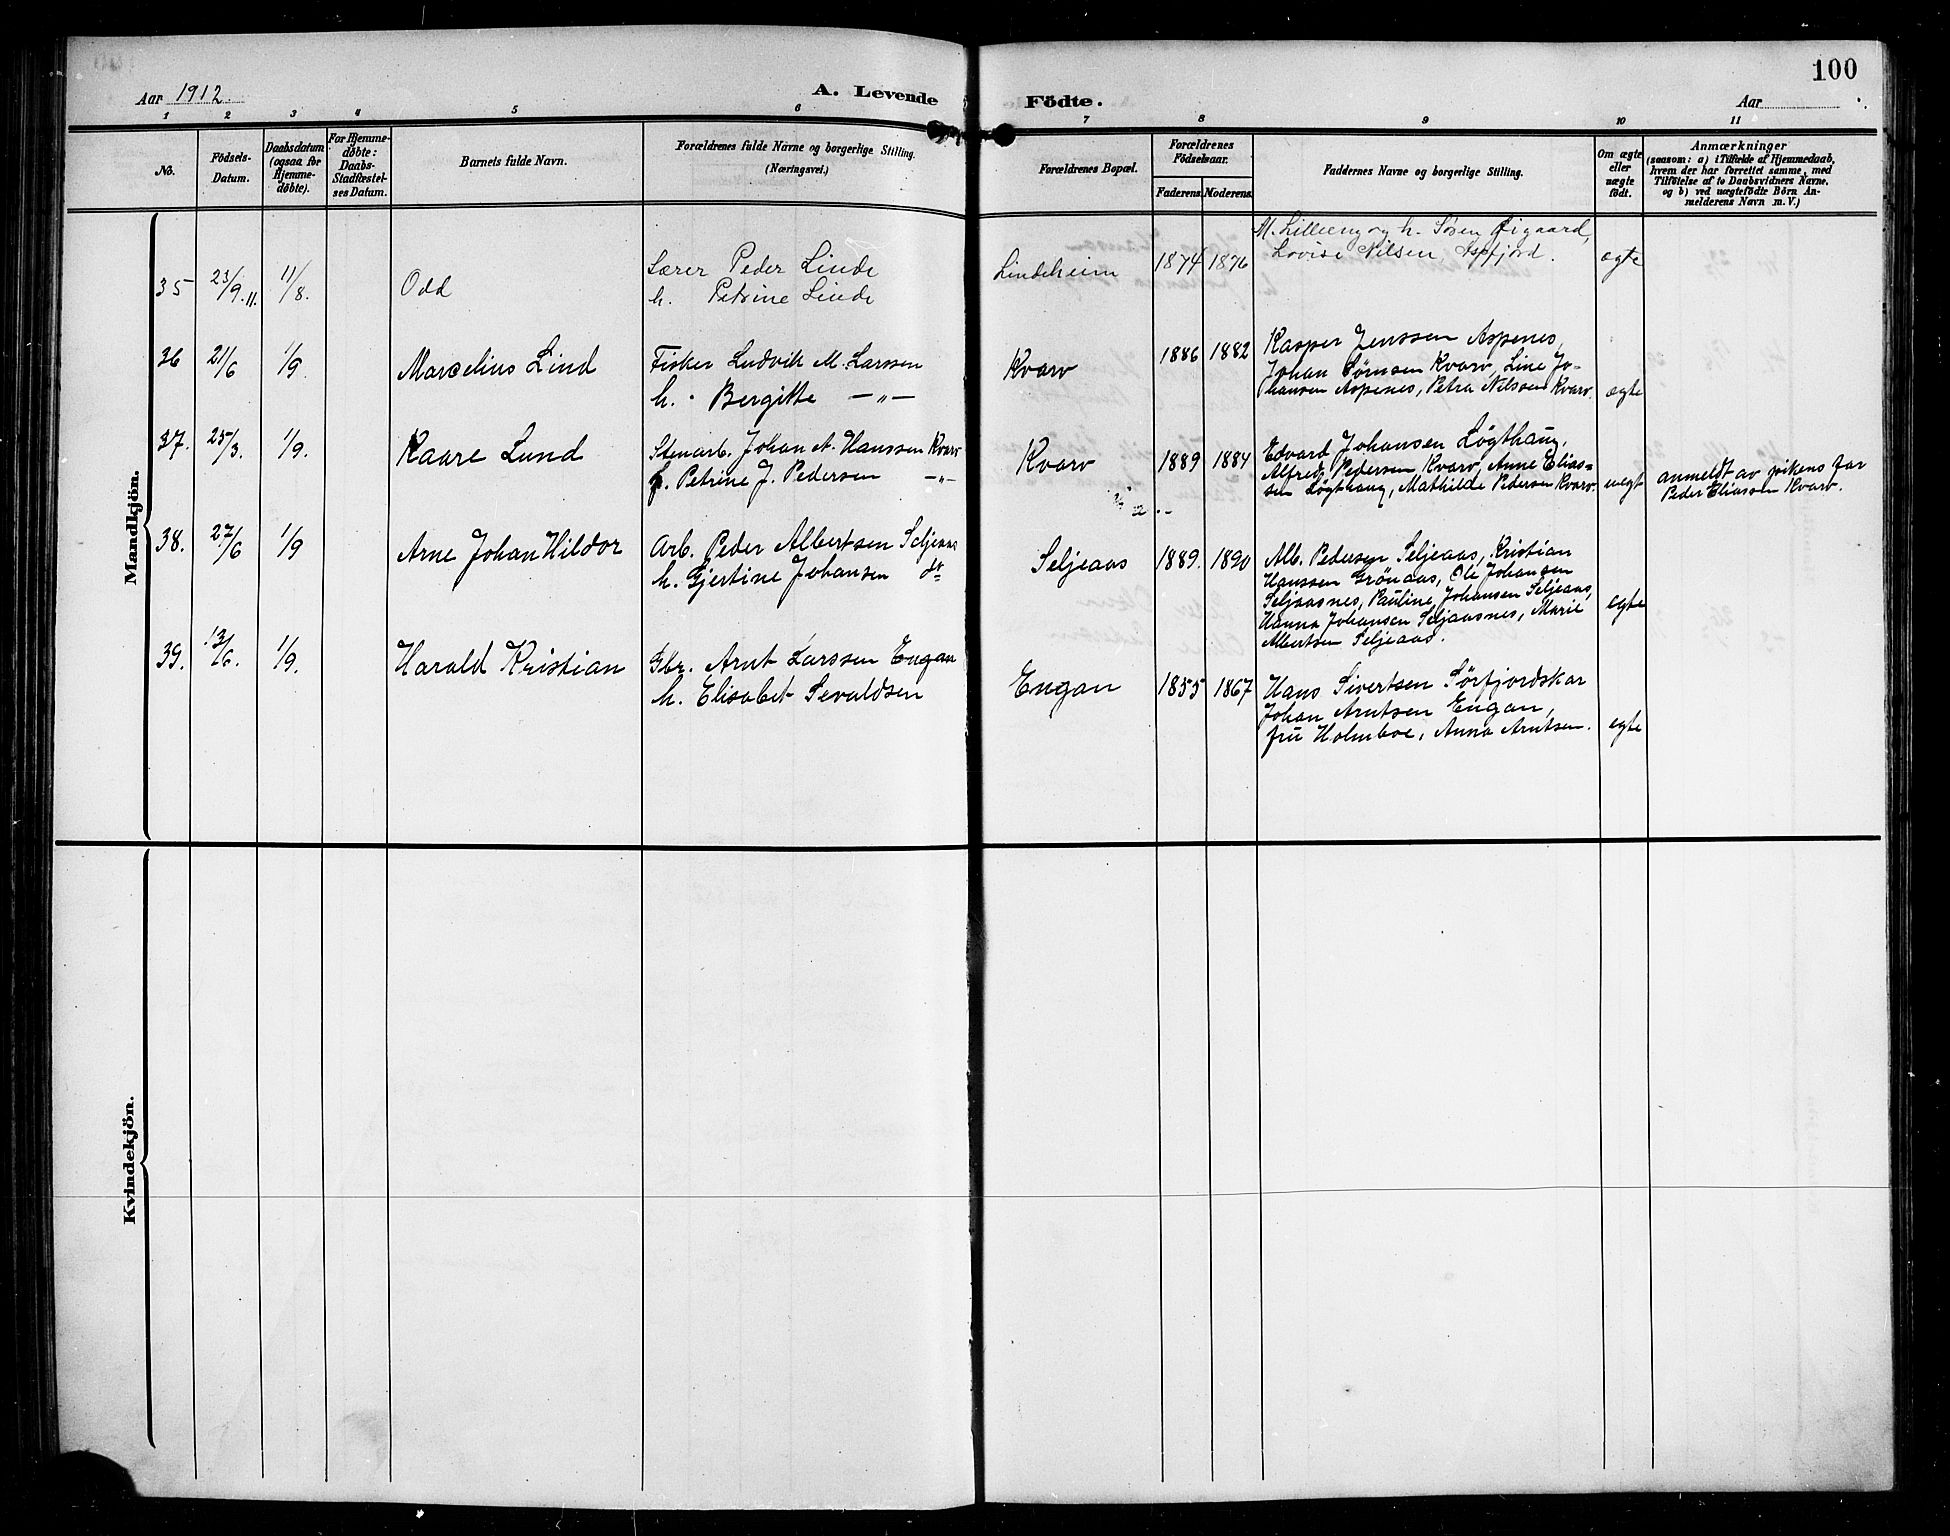 100
Aar 1912.
A. Levende Födte.
Aar
1 2 3 4 5 6 7 8 9 10 11
No.
Födsels-Datum.
Daabsdatum (ogsaa for Hjemme-döbte).
For Hjemme-döbte: Daabs-Stadfæstel-ses Datum.
Barnets fulde Navn.
Forældrenes fulde Navne og borgerlige Stilling.
(Næringsvei.)
Forældrenes Bopæl.
Forældrenes Födselsaar.
Faderens. Moderens.
Faddernes Navne og borgerlige Stilling.
Om ægte eller uægte født.
Anmærkninger
(saasom: a) i Tilfælde af Hjemmedaab,
hvem der har forrettet samme, med
Tilföielse af to Daabsvidners Navne,
og b) ved uægtefödte Börn An-
melderens Navn m. V.)
Mandkjön.
35 23/9.11. 11/8. Odd
Lærer Peder Linde
h. Petrine Linde
Lindeheim 1874 1876
M. Lillieng og h. Søren Øigaard,
Lovise Nilsen, Aspfjord.
ægte
36 21/6 1/9. Marcelius Lind
Fisker Ludvik M. Larssen
h. Bergitte —„—
Kvarv 1886 1882
Kasper Jenssen Aspenes,
Johan Sørnsen Kvarv, Line Jo-
hansen Aspenes, Petra Nilssen Kvarv.
ægte
37. 25/3. 1/9. Kaare Lund
Stenarb. Johan A. Hanssen Kvarv
p. Petrine J. Pedersen —„—
Kvarv 1889 1884
Edvard Johansen Løgthaug,
Alfred Pedersen Kvarv, Anne Elias-
sen Løgthaug, Mathilde Pedersen Kvarv.
uegt
anmeldt av pikens far
Peder Eliassen Kvarv.
38. 27/6 1/9 Arne Johan Hildor
Arb. Peder Albertsen Seljeaas
h. Gjertine Johansen dt
Seljeaas 1889. 1890
Alb. Pedersen Seljeaas, Kristian
Hanssen Grönaas, Ole Johansen
Seljaasnes, Pauline Johansen Seljeaas,
Hanna Johansen Seljaasnes, Marie
Albertsen Seljeaas.
egte
39. 13/6. 1/9. Harald Kristian
Gbr. Arnt Larssen Engan
h. Elisabet Sevaldsen
Engan 1855 1867
Hans Sivertsen Sörfjordskar
Johan Arntsen Engan,
fru Holmboe, Anna Arntsen.
egte
Kvindekjön.